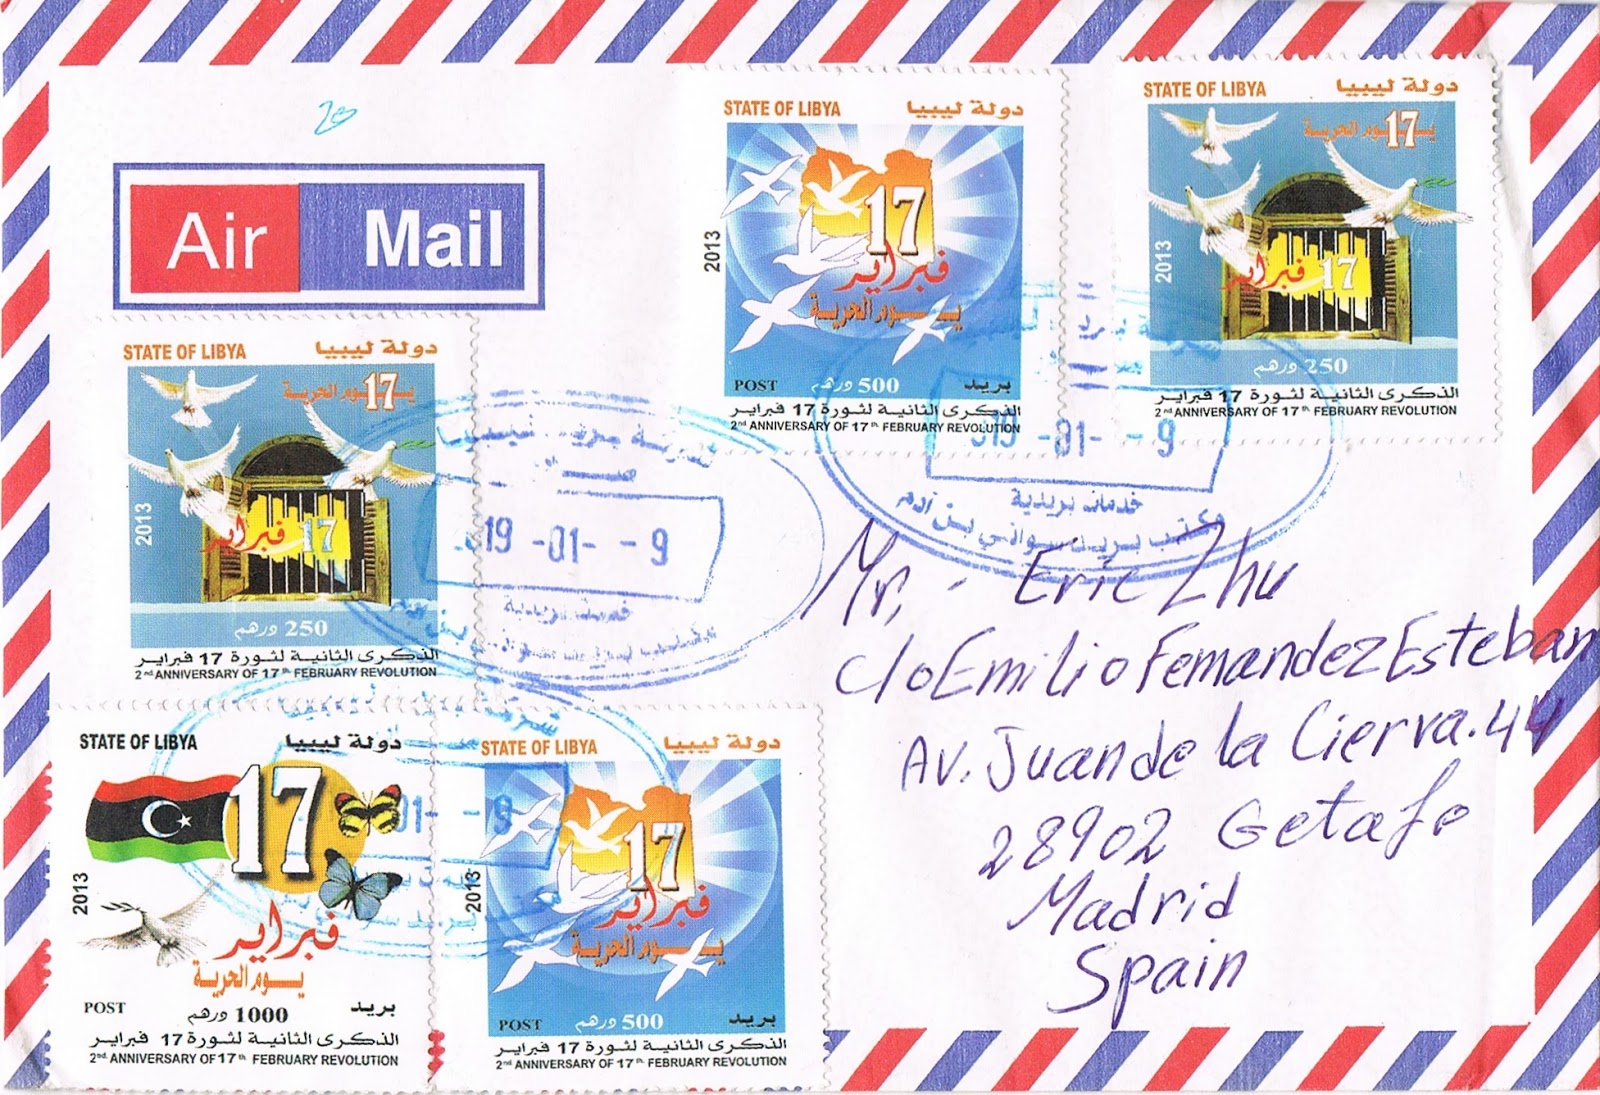 Air Mail
STATE OF LIBYA دولة ليبيا
17
2013
فبراير
يوم الحرية
POST 500 درهم بريد
الذكرى الثانية لثورة 17 فبراير
2nd ANNIVERSARY OF 17th FEBRUARY REVOLUTION
STATE OF LIBYA دولة ليبيا
17 يوم الحرية
2013
17 فبراير
250 درهم
الذكرى الثانية لثورة 17 فبراير
2nd ANNIVERSARY OF 17th FEBRUARY REVOLUTION
STATE OF LIBYA دولة ليبيا
17 يوم الحرية
2013
17 فبراير
250 درهم
الذكرى الثانية لثورة 17 فبراير
2nd ANNIVERSARY OF 17th FEBRUARY REVOLUTION
19 -01- -9
خدمات بريدية
-01- -9
خدمات بريدية
مكتب بريد سواني بن آدم
Mr. - Eric Zhu
c/o Emilio Fernandez Esteban
Av. Juan de la Cierva. 44
28902 Getafe
Madrid
Spain
STATE OF LIBYA دولة ليبيا
17
2013
فبراير
يوم الحرية
POST 1000 درهم بريد
الذكرى الثانية لثورة 17 فبراير
2nd ANNIVERSARY OF 17th FEBRUARY REVOLUTION
STATE OF LIBYA دولة ليبيا
17
2013
فبراير
يوم الحرية
POST 500 درهم بريد
الذكرى الثانية لثورة 17 فبراير
2nd ANNIVERSARY OF 17th FEBRUARY REVOLUTION
01- -9